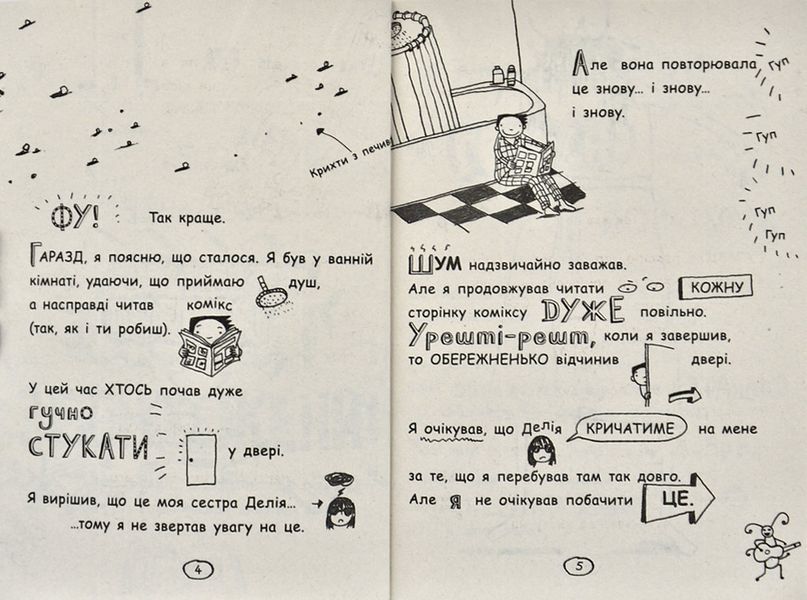 Крихти з печива
ФУ! Так краще.
ГАРАЗД, я поясню, що сталося. Я був у ванній
кімнаті, удаючи, що приймаю душ,
а насправді читав комікс
(так, як і ти робиш).
У цей час ХТОСЬ почав дуже
гучно
СТУКАТИ у двері.
Я вирішив, що це моя сестра Делія...
...тому я не звертав увагу на це.
4
Але вона повторювала
це знову... і знову...
і знову.
Гуп
Гуп
Гуп
Гуп
ШУМ надзвичайно заважав.
Але я продовжував читати КОЖНУ
сторінку коміксу ДУЖЕ повільно.
Урешті-решт, коли я завершив,
то ОБЕРЕЖНЕНЬКО відчинив двері.
Я очікував, що Делія КРИЧАТИМЕ на мене
за те, що я перебував там так довго.
Але я не очікував побачити ЦЕ.
5